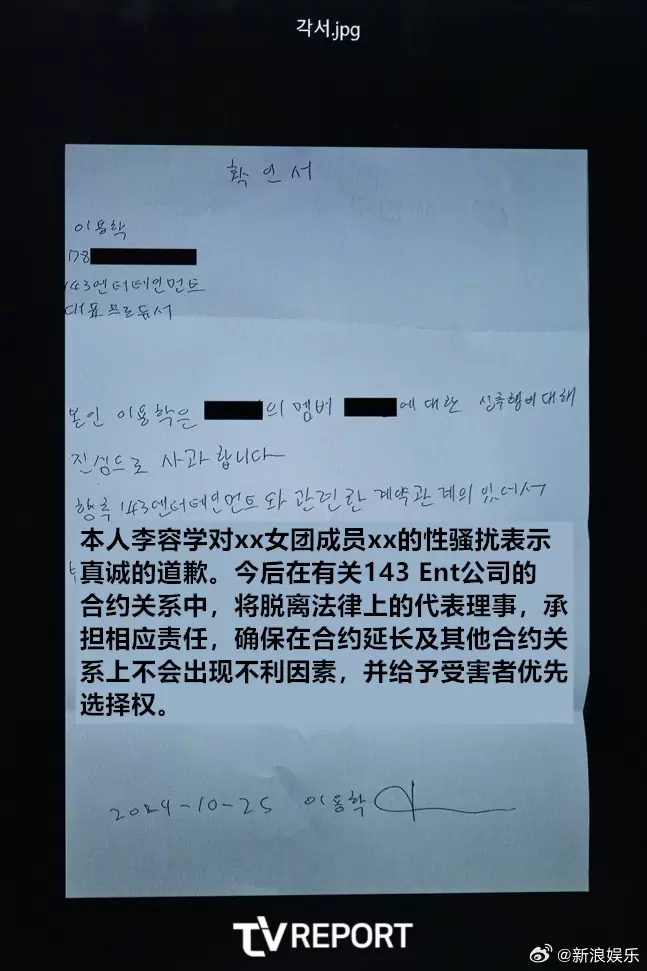 각서.jpg
확인서
이용학
78
143엔터테인먼트
대표프로듀서
본인 이용학은 의 멤버 에 대한 성추행비대해
진심으로 사과합니다
향후 143엔터테인먼트와 관련한 계약관계의 있어서
本人李容学对xx女团成员xx的性骚扰表示
真诚的道歉。今后在有关143 Ent公司的
合约关系中，将脱离法律上的代表理事，承
担相应责任，确保在合约延长及其他合约关
系上不会出现不利因素，并给予受害者优先
选择权。
2024-10-25 이용학
TVREPORT
@新浪娱乐